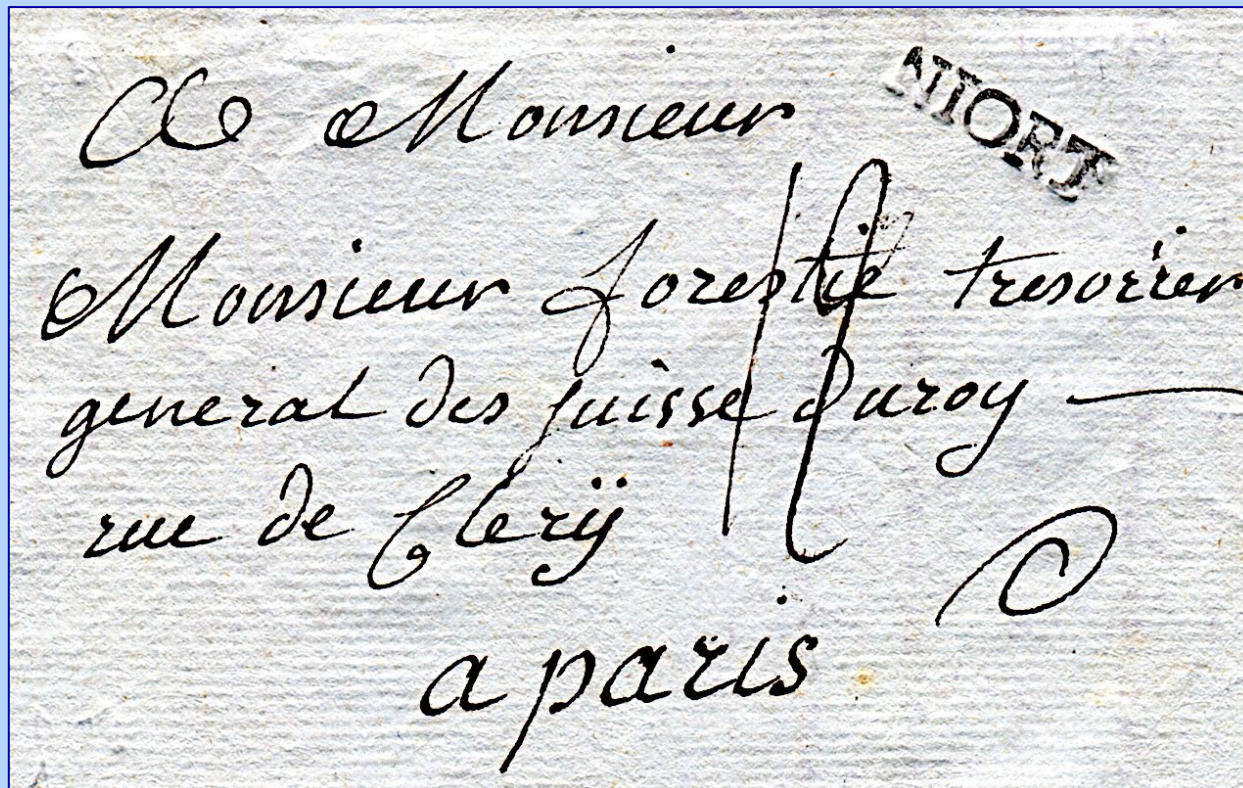 A Monsieur
NIORT
Monsieur forestié tresorier
general des suisse du roy
rue de Clerÿ
a paris